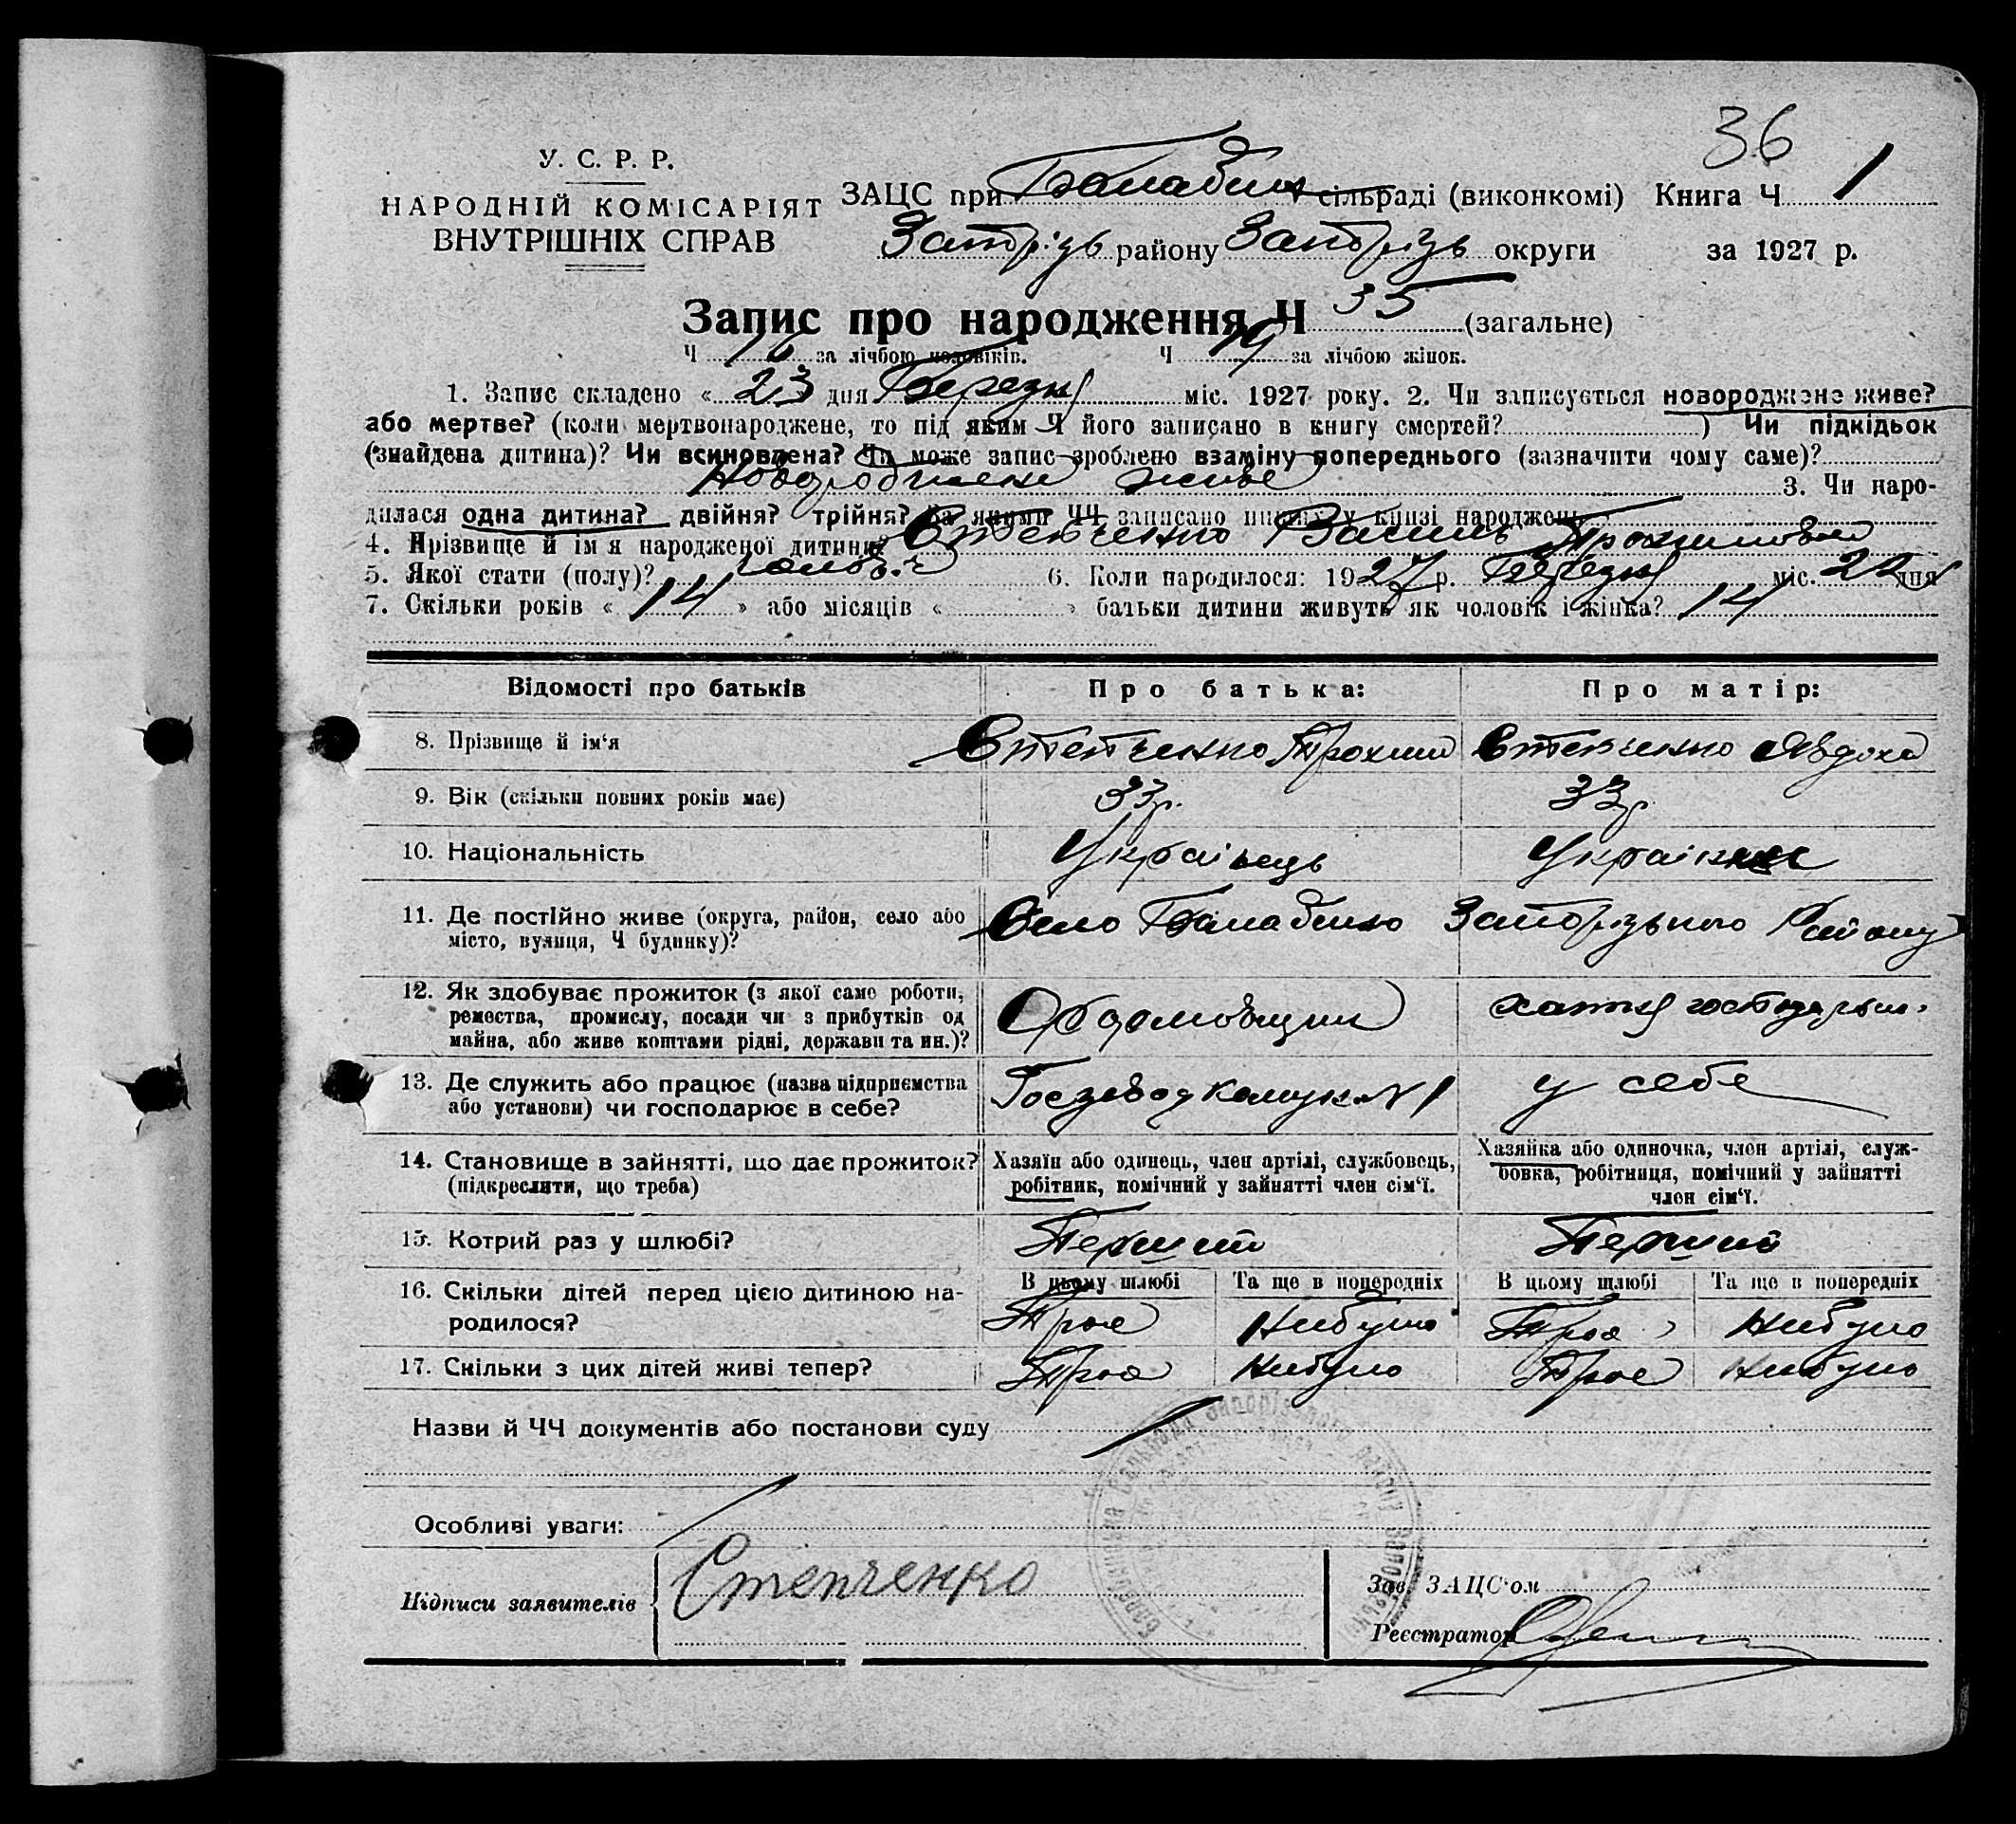 36
У. С. Р. Р.
НАРОДНІЙ КОМІСАРІЯТ
ВНУТРІШНІХ СПРАВ
ЗАЦС при Балабин сільраді (виконкомі) Книга Ч 1
Запорізь району Запорізь округи за 1927 р.
Запис про народження Ч 35 (загальне)
Ч 16 за лічбою чоловіків. Ч 19 за лічбою жінок.
1. Запис складено « 23 дня Березня міс. 1927 року. 2. Чи записується новороджене живе?
або мертве? (коли мертвонароджене, то під яким Ч його записано в книгу смертей? ) Чи підкідьок
(знайдена дитина)? Чи всиновлена? Чи може запис зроблено взаміну попереднього (зазначити чому саме)?
Новороджене живе 3. Чи наро-
дилася одна дитина? двійня? трійня? За якими ЧЧ записано инших у книзі народжень
4. Прізвище й ім'я народженої дитини Степченко Василь Трохимович
5. Якої стати (полу)? 6. Коли народилося: 1927 р. Березня міс. 22 дня
7. Скільки років « 14 » або місяців « » батьки дитини живуть як чоловік і жінка? 14
Відомості про батьків Про батька: Про матір:
8. Прізвище й ім'я Степченко Трохим Степченко Явдоха
9. Вік (скільки повних років має) 33 р. 33 р.
10. Національність Українець Українка
11. Де постійно живе (округа, район, село або місто, вулиця, Ч будинку)? Село Балабино Запорізького Району
12. Як здобуває прожиток (з якої саме роботи,
ремества, промислу, посади чи з прибутків од
майна, або живе коштами рідні, держави та ин.)? хатня господарьш.
13. Де служить або працює (назва підприємства
або установи) чи господарює в себе? Госзавод Комунар N 1 у себе
14. Становище в зайнятті, що дає прожиток?
(підкреслити, що треба)
Хазяїн або одинець, член артілі, службовець,
робітник, помічний у зайнятті член сім'ї.
Хазяйка або одиночка, член артілі, служ-
бовка, робітниця, помічний у зайнятті
член сім'ї.
15. Котрий раз у шлюбі? Перший Перший
В цьому шлюбі Та ще в попередніх В цьому шлюбі Та ще в попередніх
16. Скільки дітей перед цією дитиною на-
родилося? Трое Небуло Трое Небуло
17. Скільки з цих дітей живі тепер? Трое Небуло Трое Небуло
Назви й ЧЧ документів або постанови суду
Особливі уваги:
Підписи заявителів Степченко
Зав. ЗАЦС'ом
Реєстратор